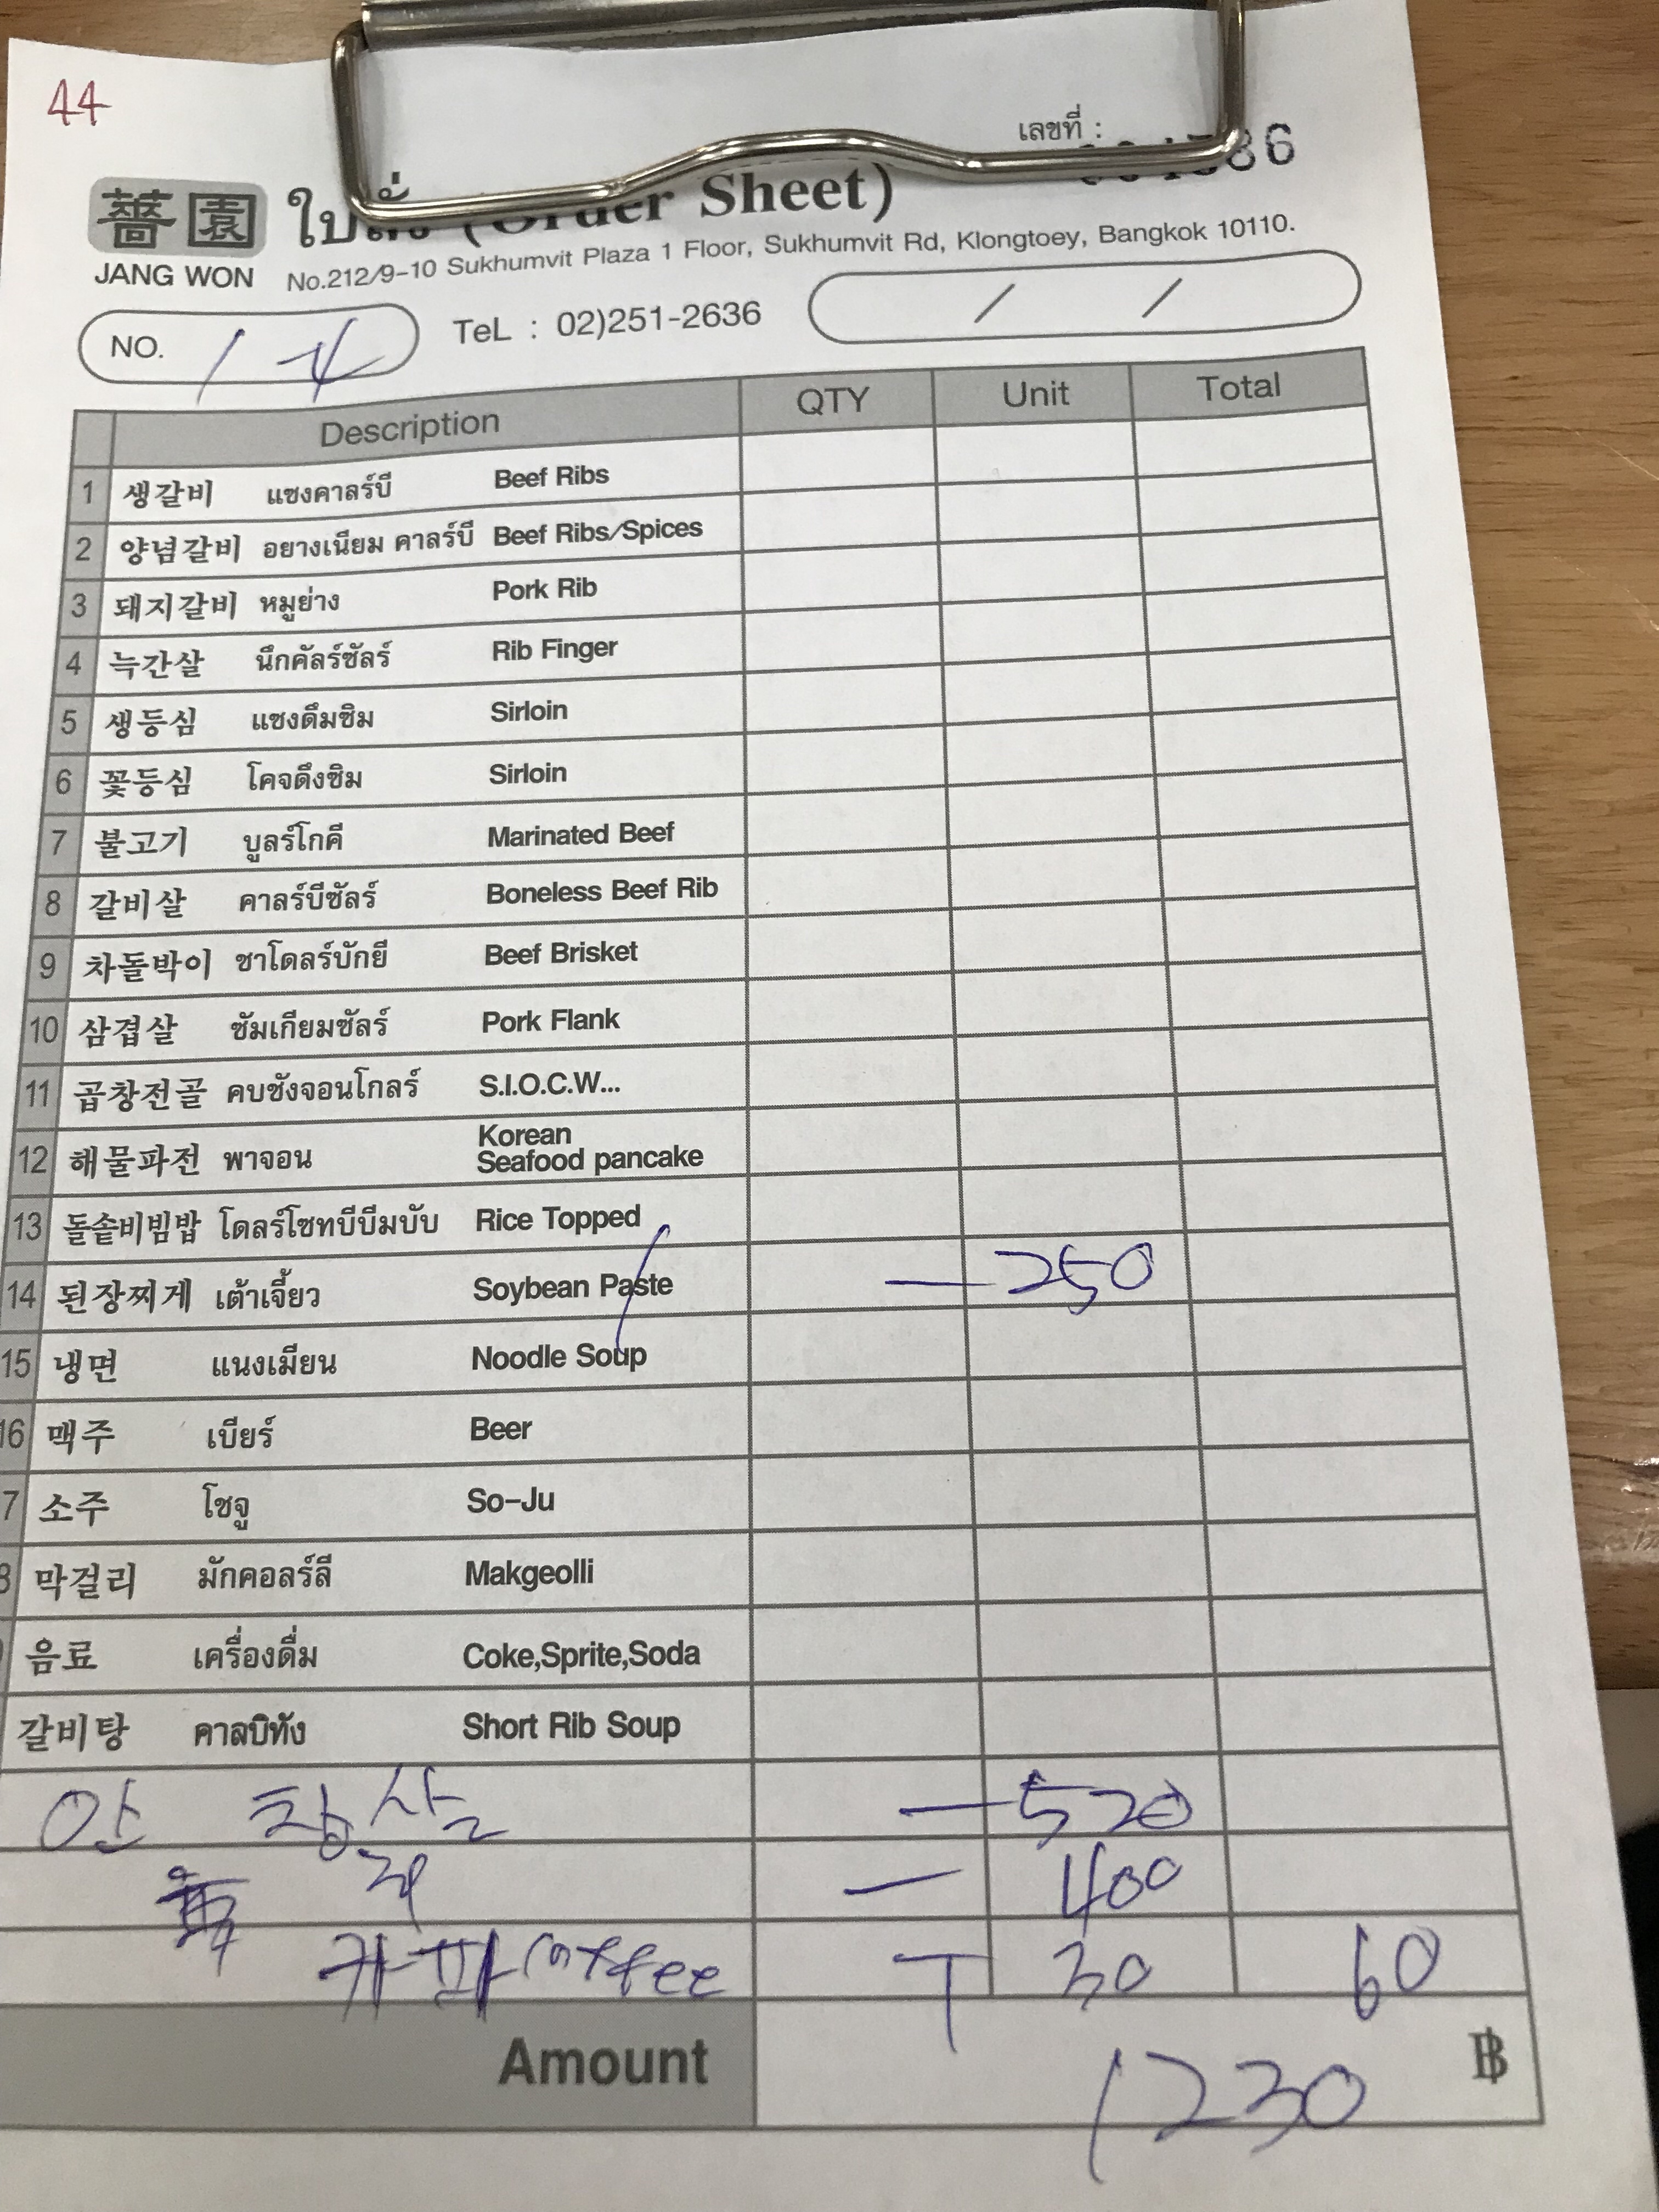 44
เลขที่ :
薔園 ใบสั่ง (Order Sheet)
JANG WON No.212/9-10 Sukhumvit Plaza 1 Floor, Sukhumvit Rd, Klongtoey, Bangkok 10110.
NO. 1-4 TeL : 02)251-2636 / /
Description QTY Unit Total
1 생갈비 แซงคาลร์บี Beef Ribs
2 양념갈비 อยางเนียม คาลร์บี Beef Ribs/Spices
3 돼지갈비 หมูย่าง Pork Rib
4 늑간살 นึกคัลร์ซัลร์ Rib Finger
5 생등심 แซงดึมซิม Sirloin
6 꽃등심 โคจดึงซิม Sirloin
7 불고기 บูลร์โกคี Marinated Beef
8 갈비살 คาลร์บีซัลร์ Boneless Beef Rib
9 차돌박이 ชาโดลร์บักยี Beef Brisket
10 삼겹살 ซัมเกียมซัลร์ Pork Flank
11 곱창전골 คบชังจอนโกลร์ S.I.O.C.W...
12 해물파전 พาจอน Korean Seafood pancake
13 돌솥비빔밥 โดลร์โซทบีบีมบับ Rice Topped
14 된장찌게 เต้าเจี้ยว Soybean Paste — 250
15 냉면 แนงเมียน Noodle Soup
16 맥주 เบียร์ Beer
7 소주 โซจู So-Ju
8 막걸리 มักคอลร์ลี Makgeolli
음료 เครื่องดื่ม Coke,Sprite,Soda
갈비탕 คาลบิทัง Short Rib Soup
안 창살 — 520
— 400
coffee T 30 60
Amount 1230 ฿